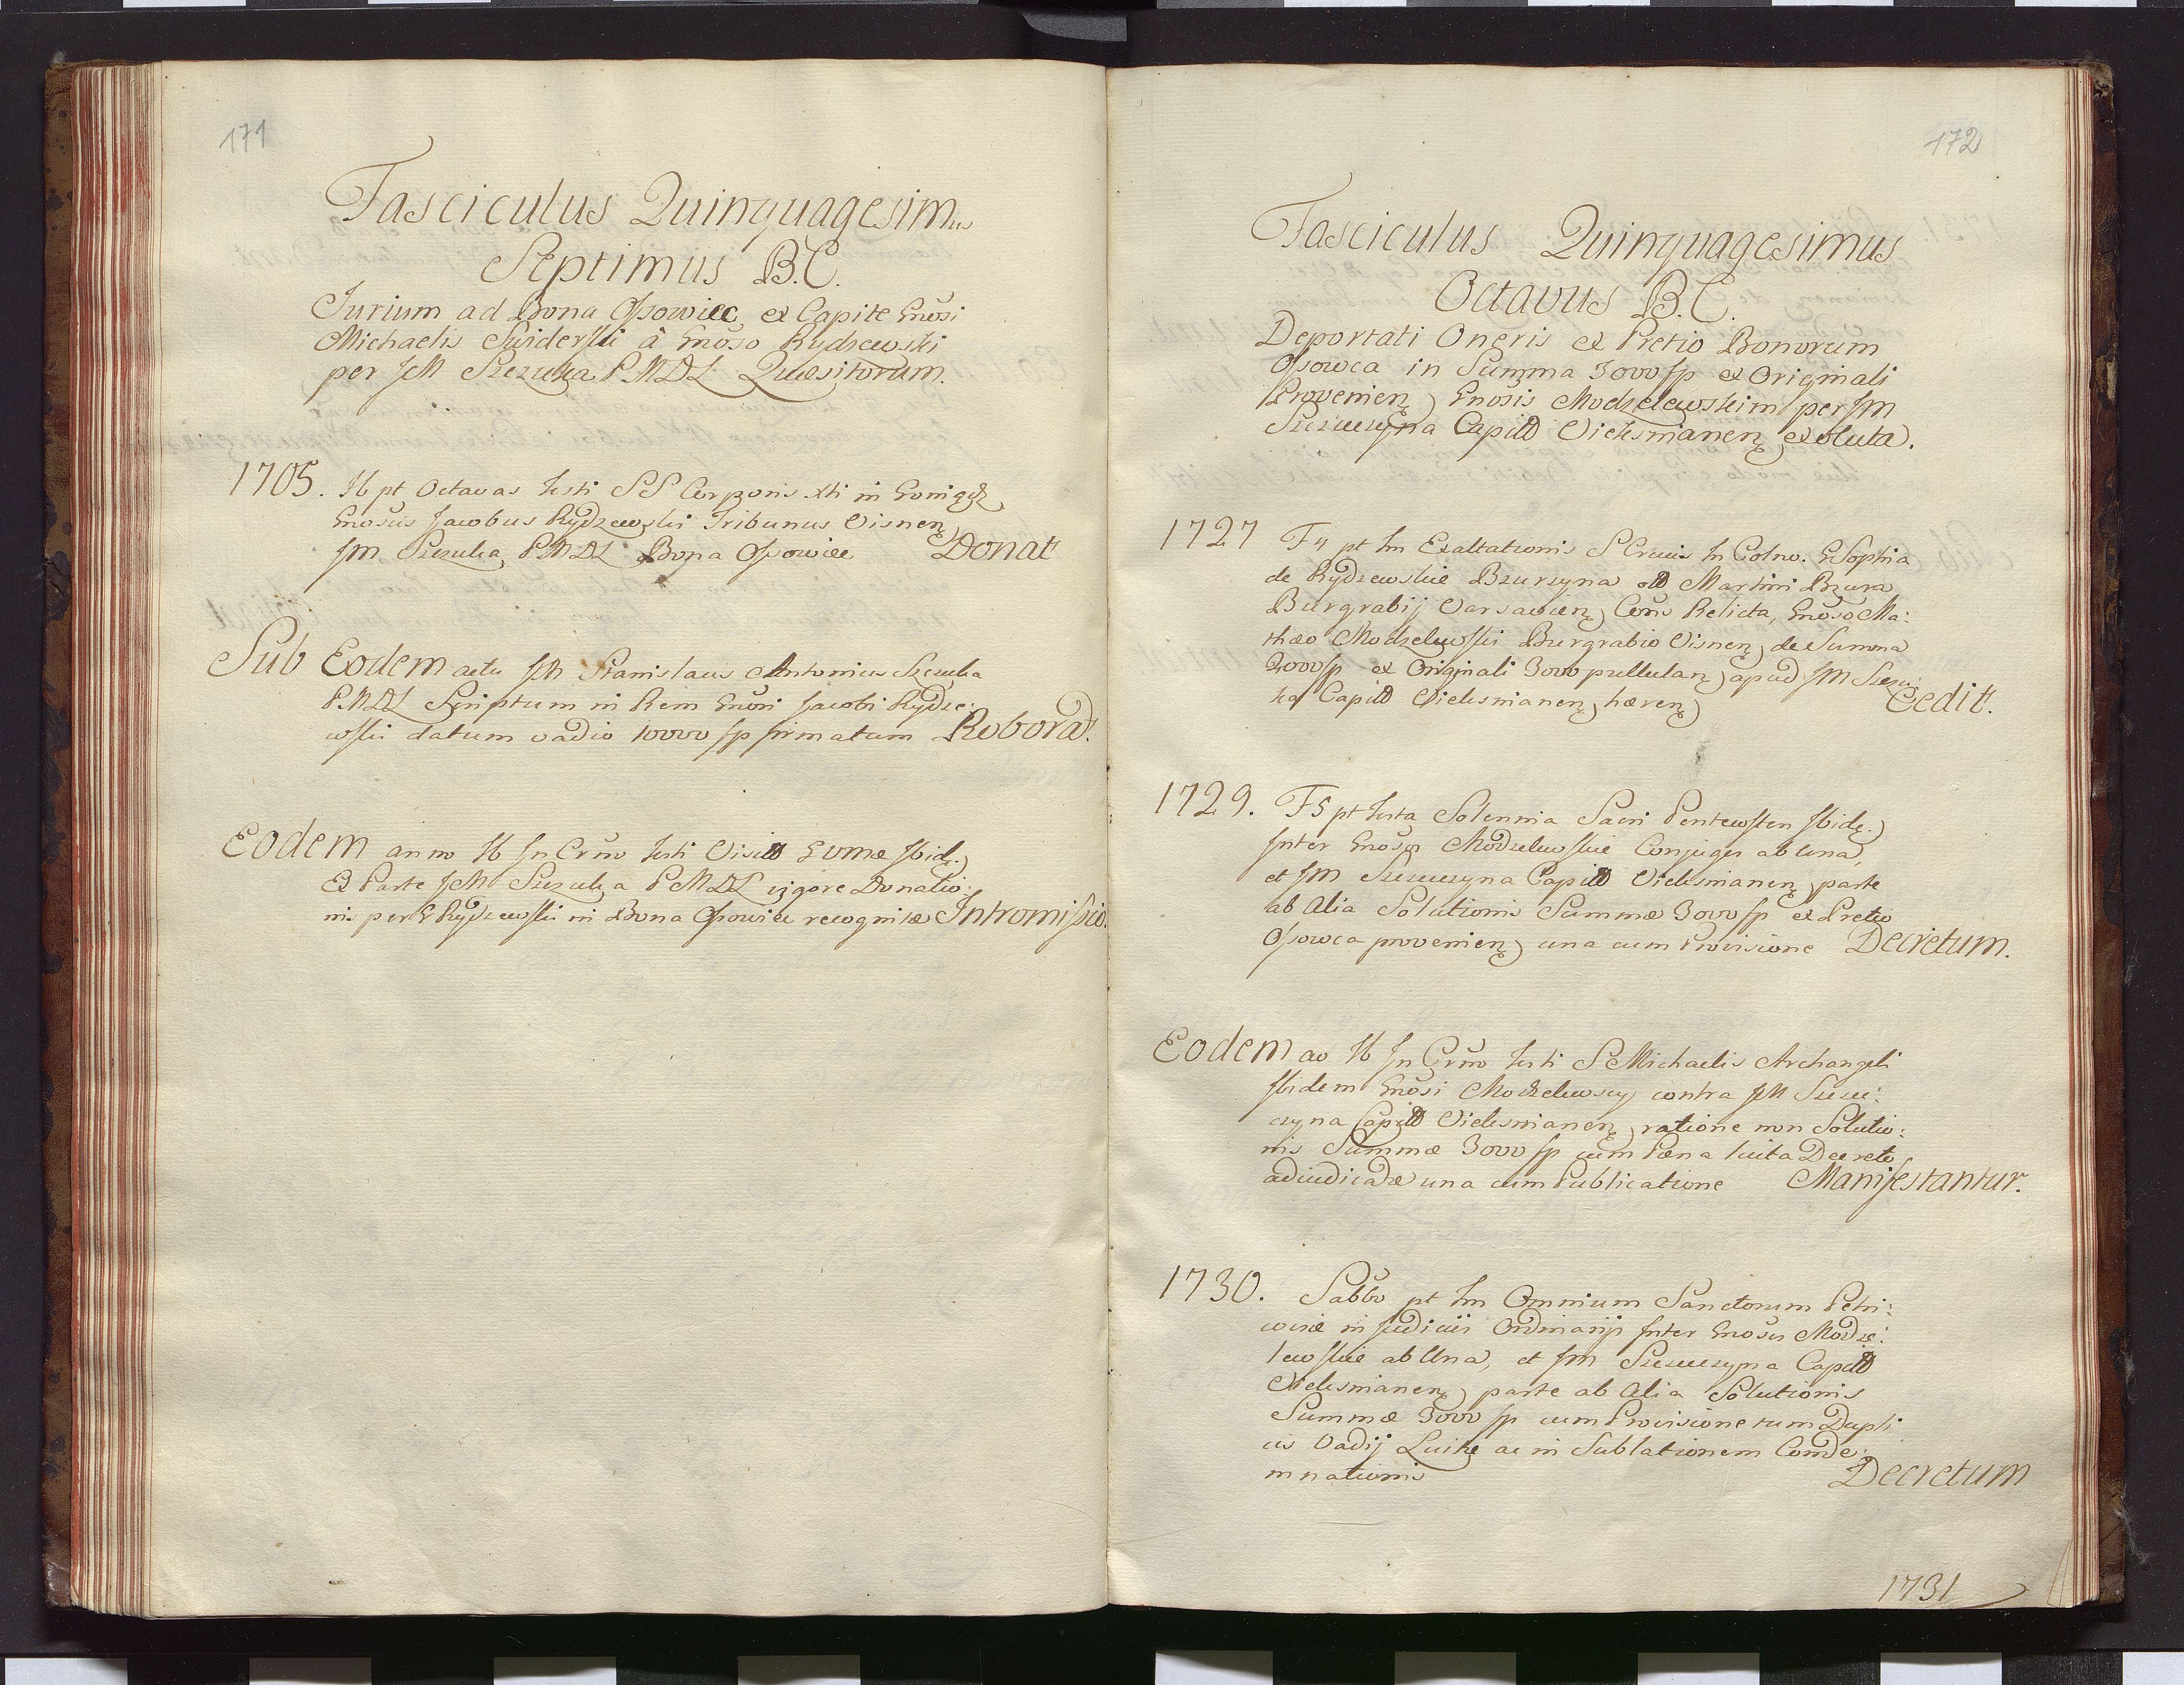 171
Fasciculus Quinquagesimus
Septimus B.C.
Jurium ad Bona Ossowiec ex Capite Gnosi
Michaelis Swiderski â Gnoso Rydzewski
per JM Szczuka PMDL Quæsitorum.
1705. Sb pt Octavas Festi SS Corporis Xti in
Gnosus Jacobus Rydzewski Tribunus Visnen
JM Szczuka PMDL Bona Ossowiec Donat
Sub Eodem actu JM Stanislaus Antonius Szczuka
PMDL Scriptum in Rem Gnosi Jacobi Rydze:
wski datum vadio 10000 fp firmatum Roborat.
Eodem anno Sb In Crno Festi Visitt Ibid.
Ex Parte JM Szczuka PMDL vigore Donatio:
nis per G Rydzewski in Bona Ossowiec recognitæ Intromissio.
172
Fasciculus Quinquagesimus
Octavus B.C.
Deportati Oneris ex Pretio Bonorum
Ossowca in Summa 3000 fp ex Originali
Provenien Gnosis Modzelewskim per JM
Szczuczyna Capitt Vielesmanen exoluta.
1727 F4 pt Fm Exaltationis S Crucis In Colno. G Sophia
de Rydzewskie Bzurzyna ol Martini Bzura
Burgrabij Varsavien Cons Relicta, Gnoso Ma:
thæo Modzelewski Burgrabio Visnen de Summa
2000 fp ex Originali 3000 pullulan apud JM Szczu:
ka Capitt Vielesmanen hæren Cedit.
1729. F5 pt Festa Solennia Sacri Pentecosten Ibid.
Inter Gnosos Modzelewskie Conjuges ab Una,
et JM Szczuczyna Capitt Vielesmanen parte
ab Alia Solutionis Summæ 3000 fp ex Pretio
Ossowca provenien una cum Provisione Decretum.
Eodem ao Sb In Crno Festi S Michaelis Archangeli
Ibidem Gnosi Modzelewscy contra JM Szczu:
czyna Capitt Vielesmanen ratione non Solutio:
nis Summæ 3000 fp cum Pæna luita Decreto
adiudicatæ una cum Publicatione Manifestantur.
1730. Sabbo pt Fm Omnium Sanctorum Petri:
coviæ in Judicijs Ordinarijs Inter Gnosos Modze:
lewskie ab Una, et JM Szczuczyna Capitt
Vielesmanen parte ab Alia Solutionis
Summæ 3000 fp cum Provisione tum Dupli
cis Vadij Luitæ ac in Sublationem Conde:
mnationis Decretum
1731